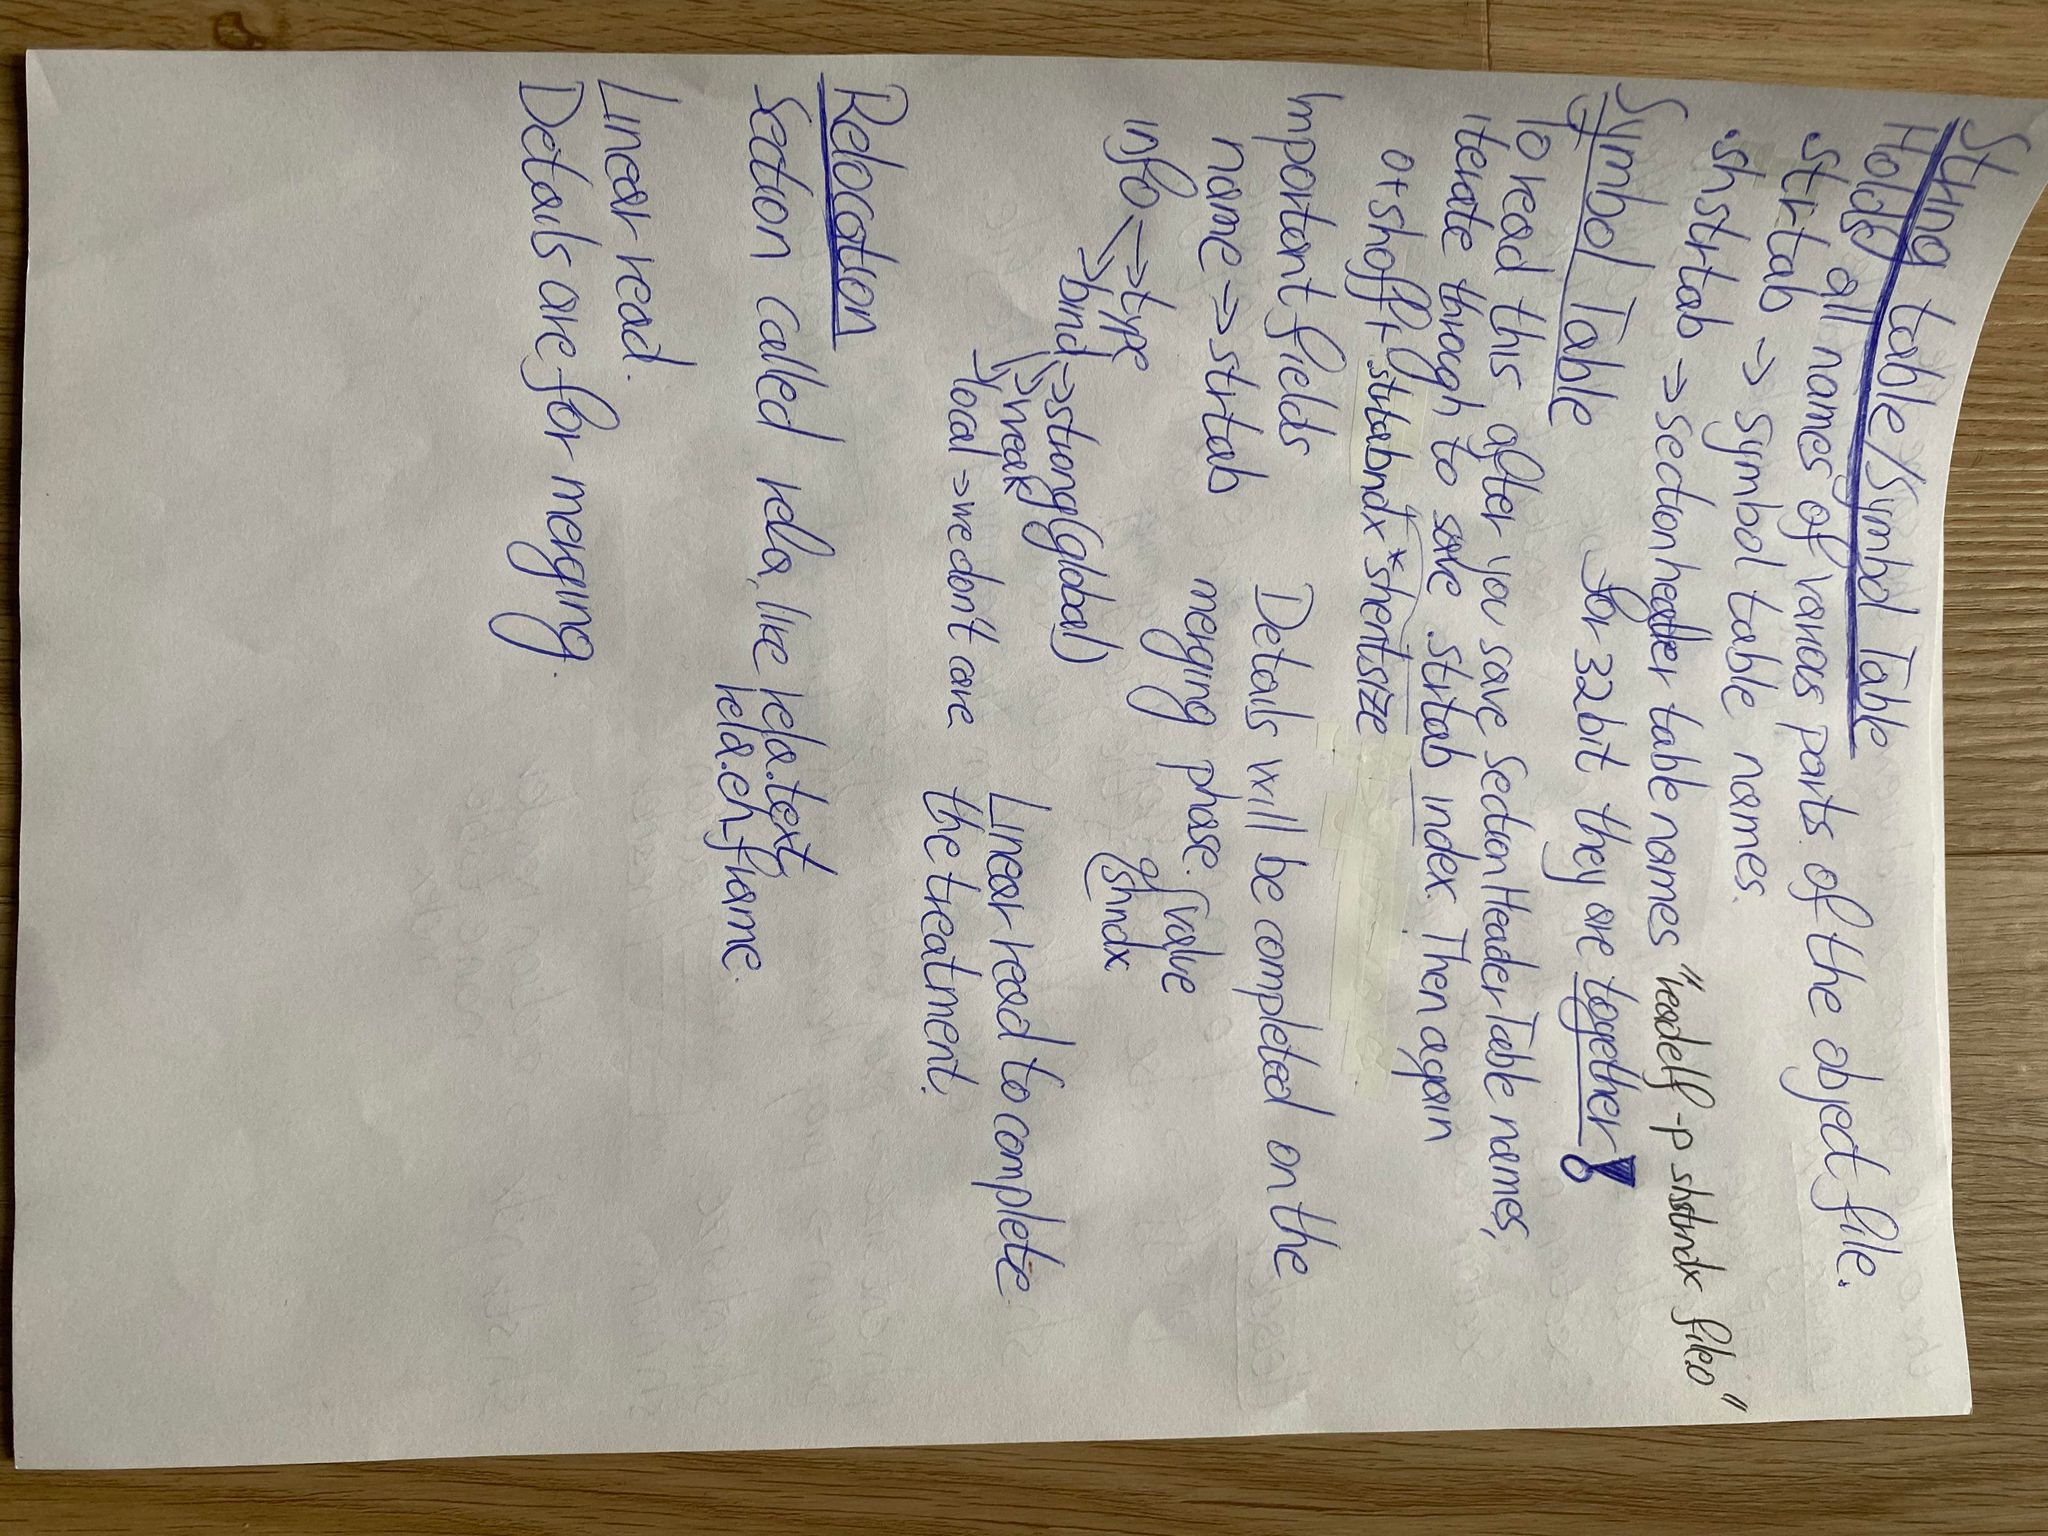 String table/Symbol Table
Holds all names of various parts of the object file.
.strtab → symbol table names.
.shstrtab → section header table names "readelf -p shstrndx file.o"
for 32bit they are together!
Symbol Table
To read this after you save SectionHeaderTable names,
iterate through to save .strtab index. Then again
0+shoff+.strtabndx*shentsize
Important fields
name → strtab
info → type
→ bind → strong(global)
→ weak
→ local → we don't care
Details will be completed on the
merging phase.
value
shndx
Linear read to complete
the treatment.
Relocation
Section called rela, like rela.text
rela.eh_frame.
Linear read.
Details are for merging.